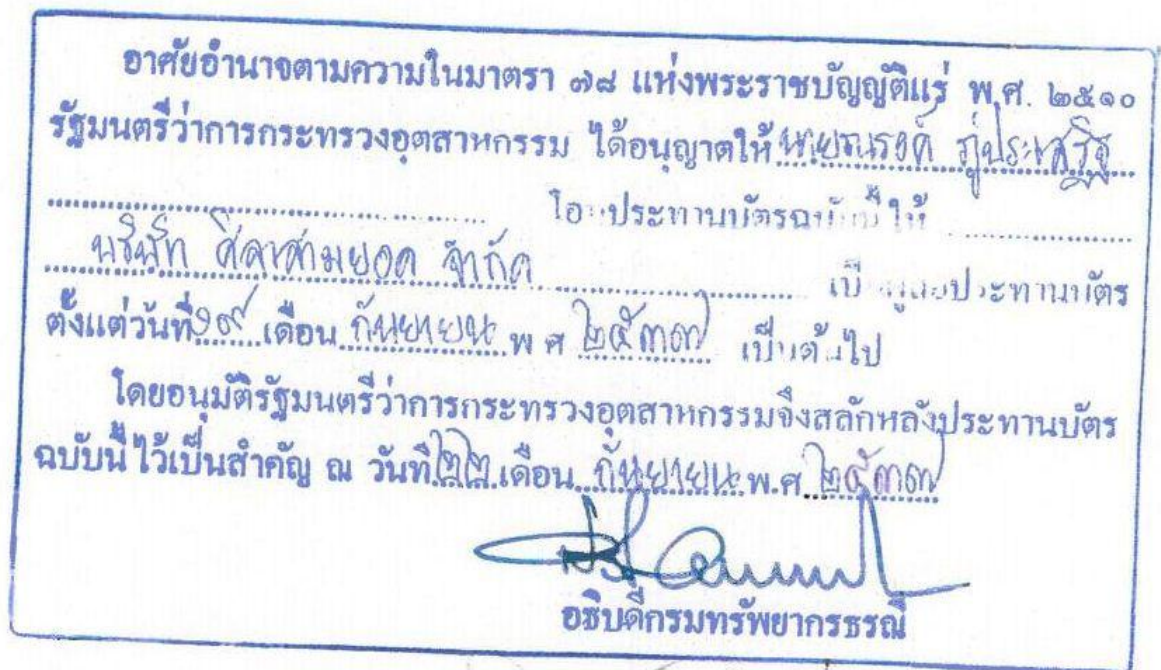 อาศัยอำนาจตามความในมาตรา ๗๘ แห่งพระราชบัญญัติแร่ พ.ศ. ๒๕๑๐
รัฐมนตรีว่าการกระทรวงอุตสาหกรรม ได้อนุญาตให้ นายณรงค์ ภู่ประเสริฐ
โอนประทานบัตรฉบับนี้ให้
บริษัท ศิลาสามยอด จำกัด เป็นผู้ถือประทานบัตร
ตั้งแต่วันที่ ๑๙ เดือน กันยายน พ.ศ. ๒๕๓๗ เป็นต้นไป
โดยอนุมัติรัฐมนตรีว่าการกระทรวงอุตสาหกรรมจึงสลักหลังประทานบัตร
ฉบับนี้ไว้เป็นสำคัญ ณ วันที่ ๒๒ เดือน กันยายน พ.ศ. ๒๕๓๗
อธิบดีกรมทรัพยากรธรณี